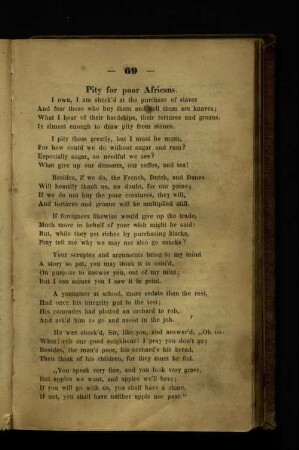 69
Pity for poor Africans.
I own, I am shock'd at the purchase of slaves
And fear those who buy them and sell them are knaves;
What I hear of their hardships, their tortures and groans,
Is almost enough to draw pity from stones.
I pity them greatly, but I must be mum,
For how could we do without sugar and rum?
Especially sugar, so needful we see?
What give up our desserts, our coffee, and tea!
Besides, if we do, the French, Dutch, and Danes
Will heartily thank us, no doubt, for our pains;
If we do not buy the poor creatures, they will,
And tortures and groans will be multiplied still.
If foreigners likewise would give up the trade,
Much more in behalf of your wish might be said;
But, while they get riches by purchasing blacks,
Pray tell me why we may not also go snacks?
Your scruples and arguments bring to my mind
A story so pat, you may think it is coin'd,
On purpose to answer you, out of my mint;
But I can assure you I saw it in print.
A youngster at school, more sedate than the rest,
Had once his integrity put to the test;
His comrades had plotted an orchard to rob,
And ask'd him to go and assist in the job.
He was shock'd, Sir, like you, and answer'd, „Oh no!
What! rob our good neighbour! I pray you don't go;
Besides, the man's poor, his orchard's his bread,
Then think of his children, for they must be fed.
„You speak very fine, and you look very grave,
But apples we want, and apples we'll have;
If you will go with us, you shall have a share,
If not, you shall have neither apple nor pear."